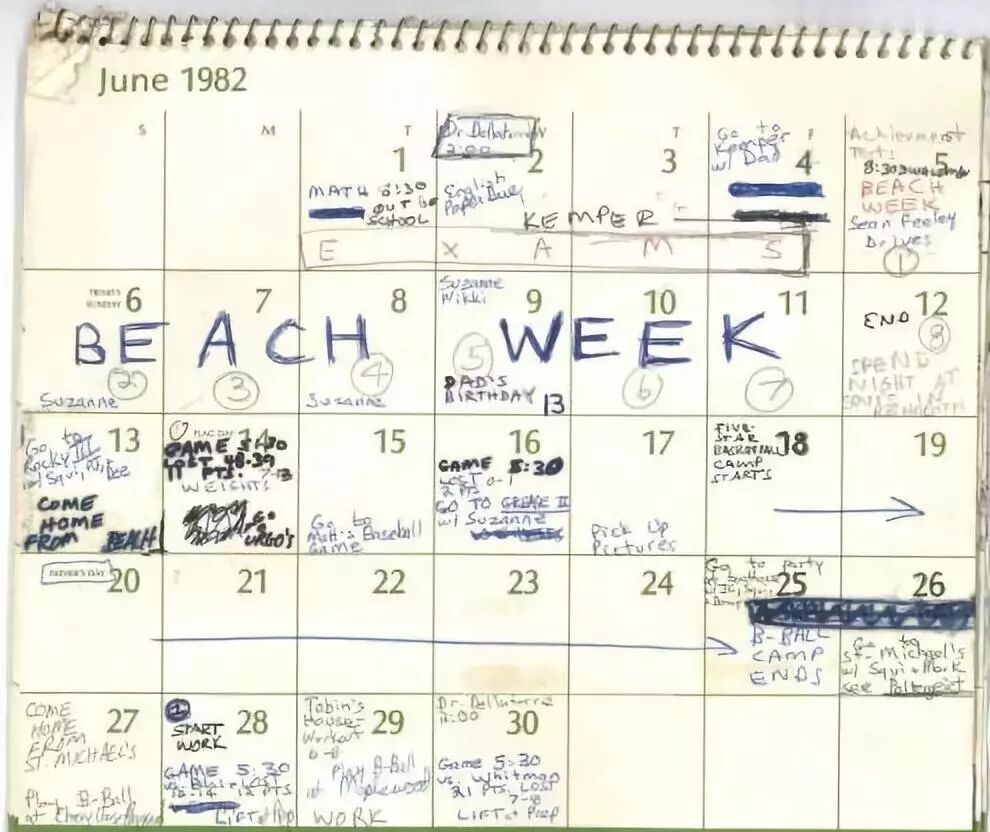 June 1982
S M T W T F S
1
MATH 8:30
OUT OF
SCHOOL
2
2:00
English
Paper Due
3
KEMPER
4
Go to
Kemper
w/ Dad
E X A M S
5
Achievement
Tests
8:30
BEACH
WEEK
Sean Feeley
Drives
1
BEACH WEEK
TRINITY
SUNDAY 6
2
Suzanne
7
3
8
4
Suzanne
9
Suzanne
Nikki
5
DAD'S
BIRTHDAY 13
10
6
11
7
12
END
8
SPEND
NIGHT AT
13
Go to
Rocky III
w/ Squi,
COME
HOME
FROM BEACH
FLAG DAY 14
GAME 5:30
LOST 48-39
11 PTS. 7-13
WEIGHTS
GO
URGO'S
15
Go to
Matt's Baseball
Game
16
GAME 5:30
LOST 0-1
2 PTS
GO TO GREASE II
w/ Suzanne
17
Pick Up
Pictures
18
FIVE-
STAR
BASKETBALL
CAMP
START'S
19
FATHER'S DAY 20
21
22
23
24
25
Go to party
B-BALL
CAMP
ENDS
26
Go to
St. Michael's
w/ Squi + Mark
see Poltergeist
27
COME
HOME
FROM
ST. MICHAEL'S
Play B-Ball
at
28
START
WORK
GAME 5:30
LIFT at Prep
29
Tobin's
House-
Workout
6-8
Play B-Ball
at Maplewood
WORK
30
2:00
Game 5:30
vs. Whitman
21 PTS. LOST
7-8
LIFT at Prep